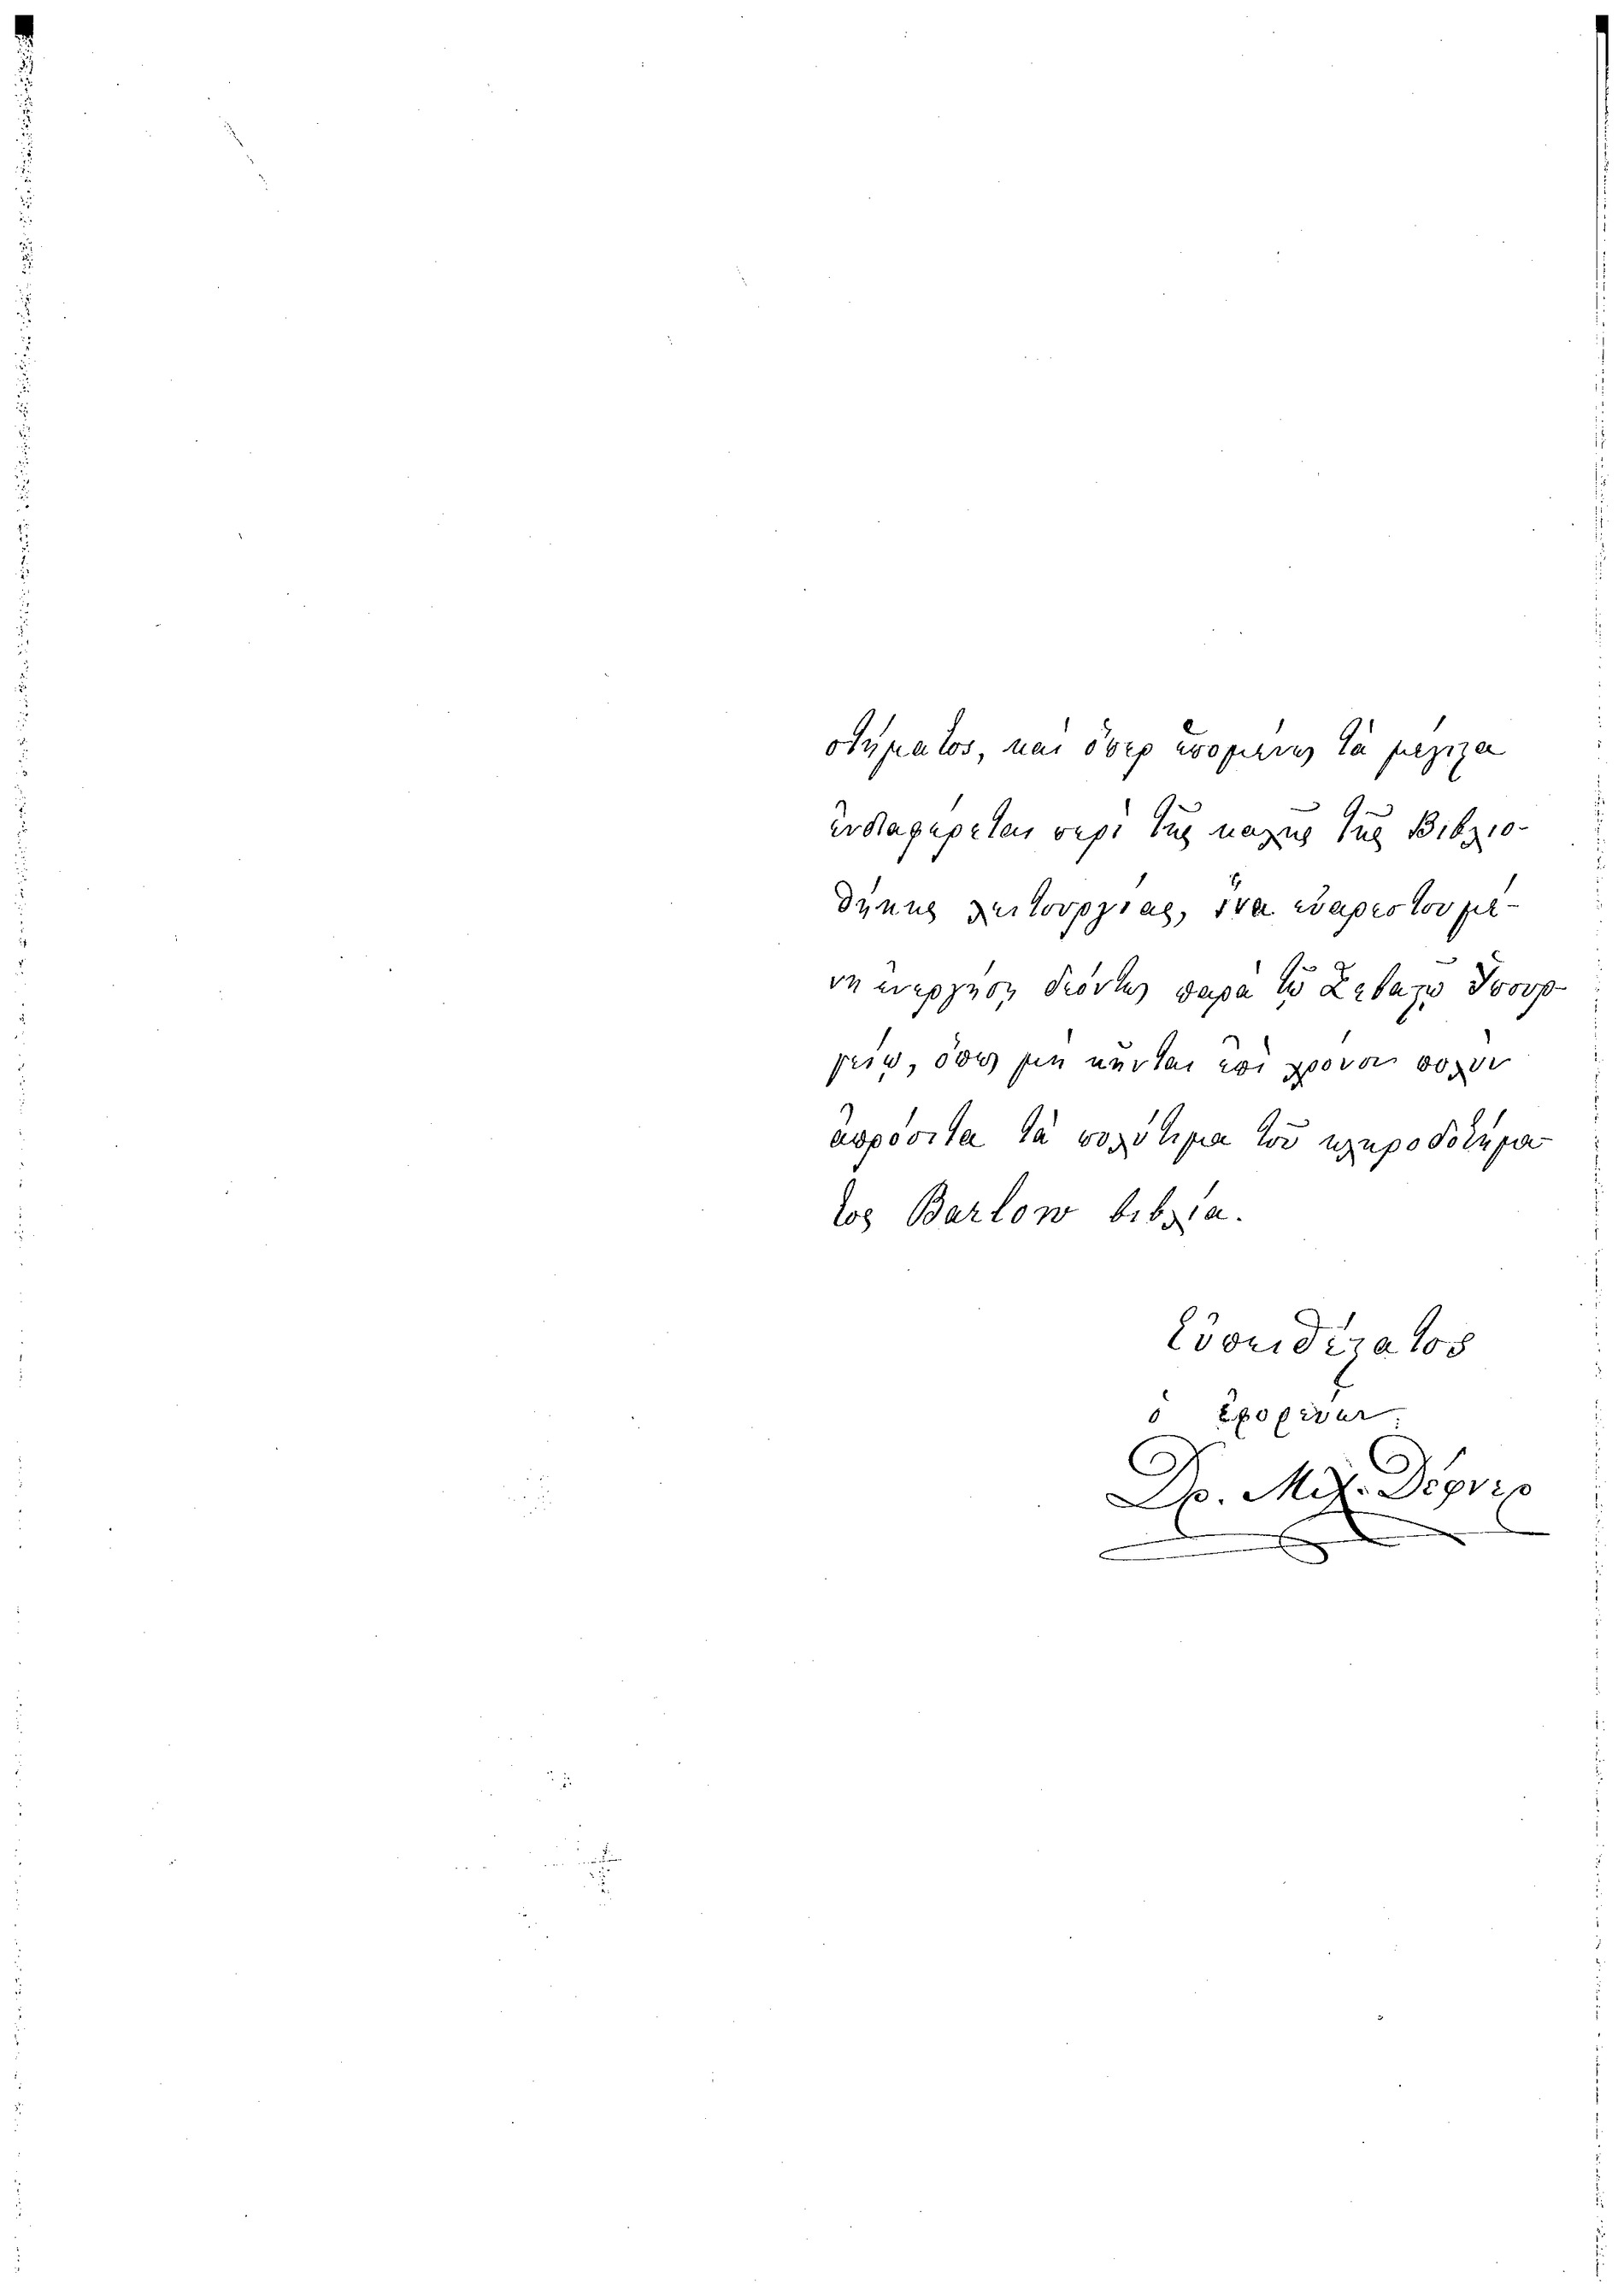 στήματος, καὶ ὅπερ ἑπομένως τὰ μέγιστα
ἐνδιαφέρεται περὶ τῆς καλῆς τῆς Βιβλιο-
θήκης λειτουργίας, ἵνα εὐαρεστουμέ-
νη ἐνεργήσῃ δεόντως παρὰ τῷ Σεβαστῷ Ὑπουρ-
γείῳ, ὅπως μὴ κεῖνται ἐπὶ χρόνον πολὺν
ἀπρόσιτα τὰ πολύτιμα τοῦ κληροδοτήμα-
τος Barlow βιβλία.
Εὐπειθέστατος
ὁ Ἐφορεύων
Δρ. Μιχ. Δέφνερ